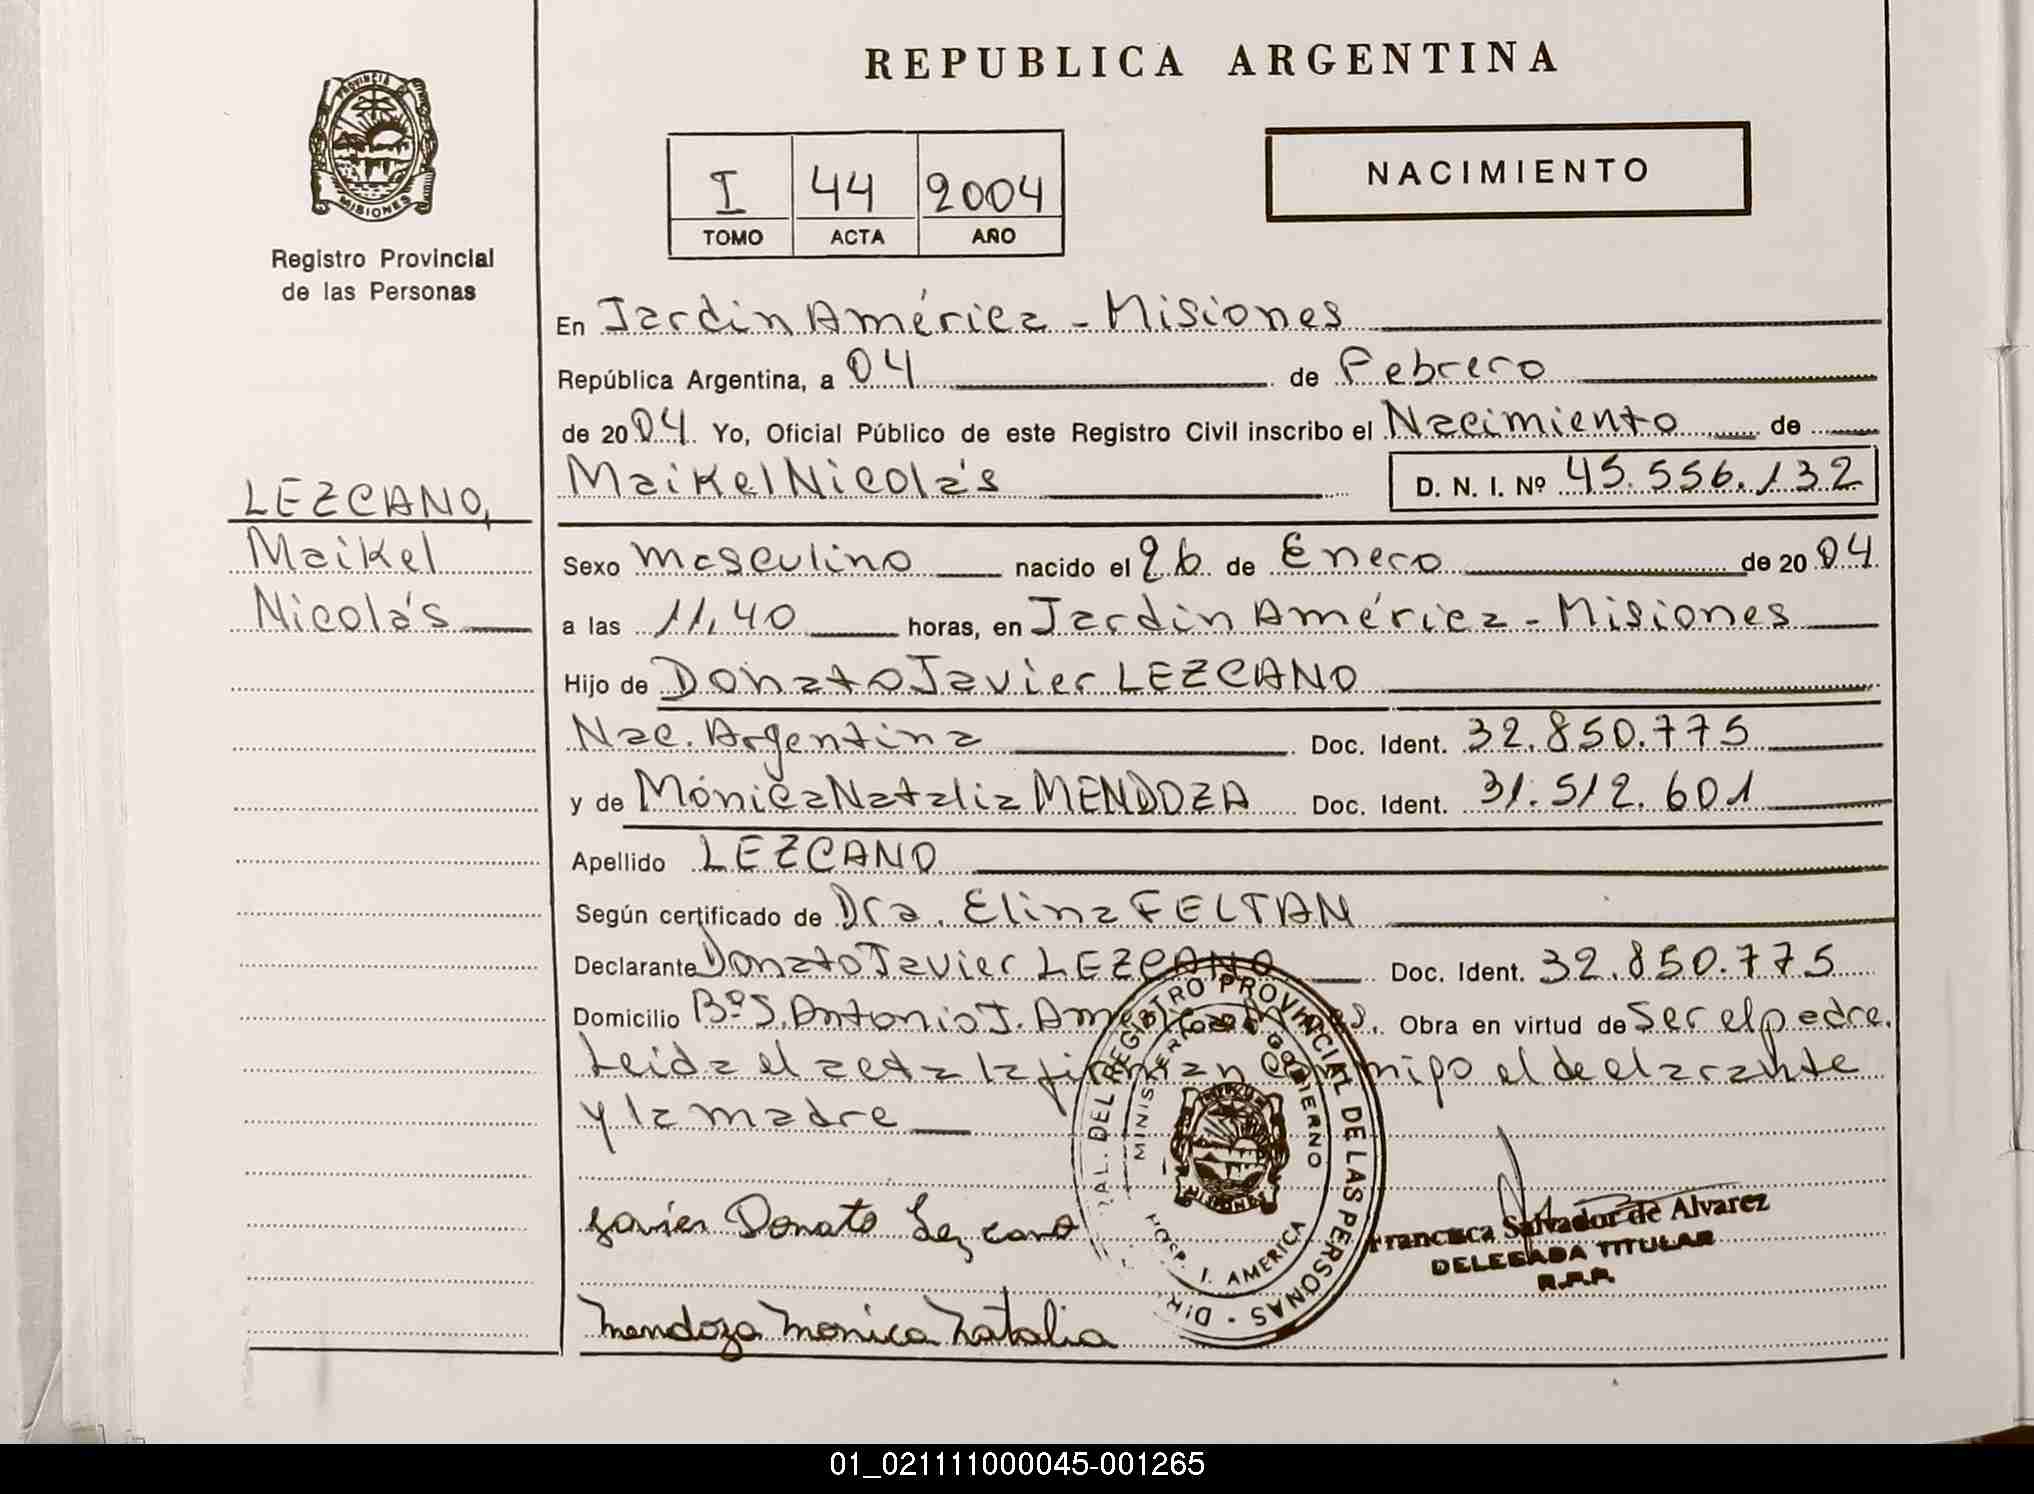 REPUBLICA ARGENTINA
PROVINCIA DE
MISIONES
Registro Provincial
de las Personas
I 44 2004
TOMO ACTA AÑO
NACIMIENTO
En Jardin América - Misiones
República Argentina, a 04 de Febrero
de 2004 Yo, Oficial Público de este Registro Civil inscribo el Nacimiento de
Maikel Nicolás D. N. I. Nº 45.556.132
LEZCANO,
Maikel
Nicolás
Sexo masculino nacido el 26 de Enero de 2004
a las 11,40 horas, en Jardin América - Misiones
Hijo de Donato Javier LEZCANO
Nac. Argentina Doc. Ident. 32.850.775
y de Mónica Natalia MENDOZA Doc. Ident. 31.512.601
Apellido LEZCANO
Según certificado de Dra. Elina FELTAN
Declarante Donato Javier LEZCANO Doc. Ident. 32.850.775
Domicilio Bº S. Antonio J. America Mnes. Obra en virtud de ser el padre.
Leida el acta la firman conmigo el declarante
y la madre
DEL REGISTRO PROVINCIAL DE LAS PERSONAS - DIR
MINISTERIO DE GOBIERNO
MISIONES
HOSP. J. AMERICA
Javier Donato Lezcano
Francisca Salvador de Alvarez
DELEGADA TITULAR
R.P.P.
Mendoza Monica Natalia
01_021111000045-001265